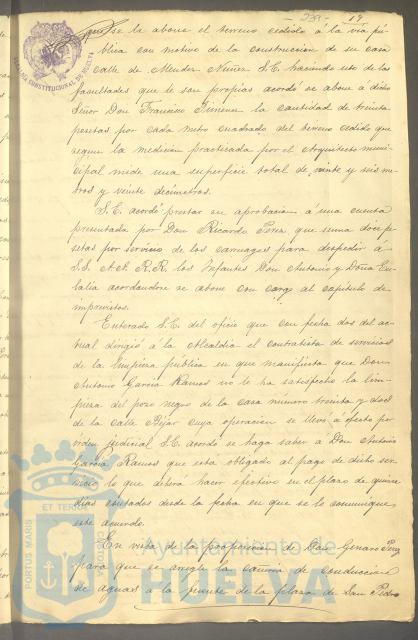 239 19
ALCALDIA CONSTITUCIONAL DE HUELVA
que se le abone el terreno cedido á la via pú-
blica con motivo de la construccion de su casa
calle de Mendez Nuñez S.E. haciendo uso de las
facultades que le son propias acordó se abone a dicho
Señor Don Francisco Jimenez la cantidad de treinta
pesetas por cada metro cuadrado del terreno cedido que
segun la medicion practicada por el Arquitecto muni-
cipal mide una superficie total de veinte y seis me-
tros y veinte decimetros.
S.E. acordó prestar su aprobacion á una cuenta
presentada por Don Ricardo Perez que suma doce pe-
setas por servicio de los carruages para despedir á
S.S. A.A. R.R. los Infantes Don Antonio y Doña Eu-
lalia acordandose se abone con cargo al capitulo de
imprevistos.
Enterado S.E. del oficio que con fecha dos del ac-
tual dirigió á la Alcaldia el contratista de servicios
de la limpieza pública en que manifiesta que Don
Antonio Garcia Ramos no le ha satisfecho la lim-
pieza del pozo negro de la casa número treinta y dos
de la calle Béjar cuya operacion se llevó á efecto por
orden judicial S.E. acordó se haga saber a Don Antonio
Garcia Ramos que está obligado al pago de dicho ser-
vicio lo que deberá hacer efectivo en el plazo de quince
dias contados desde la fecha en que se le comunique
este acuerdo.
En vista de la proposicion de Don Genaro Perez
para que se arregle la cañeria de conduccion
de aguas a la fuente de la plaza de San Pedro
PORTUS MARIS ET TERRAE CUSTODIA
Ayuntamiento de
HUELVA